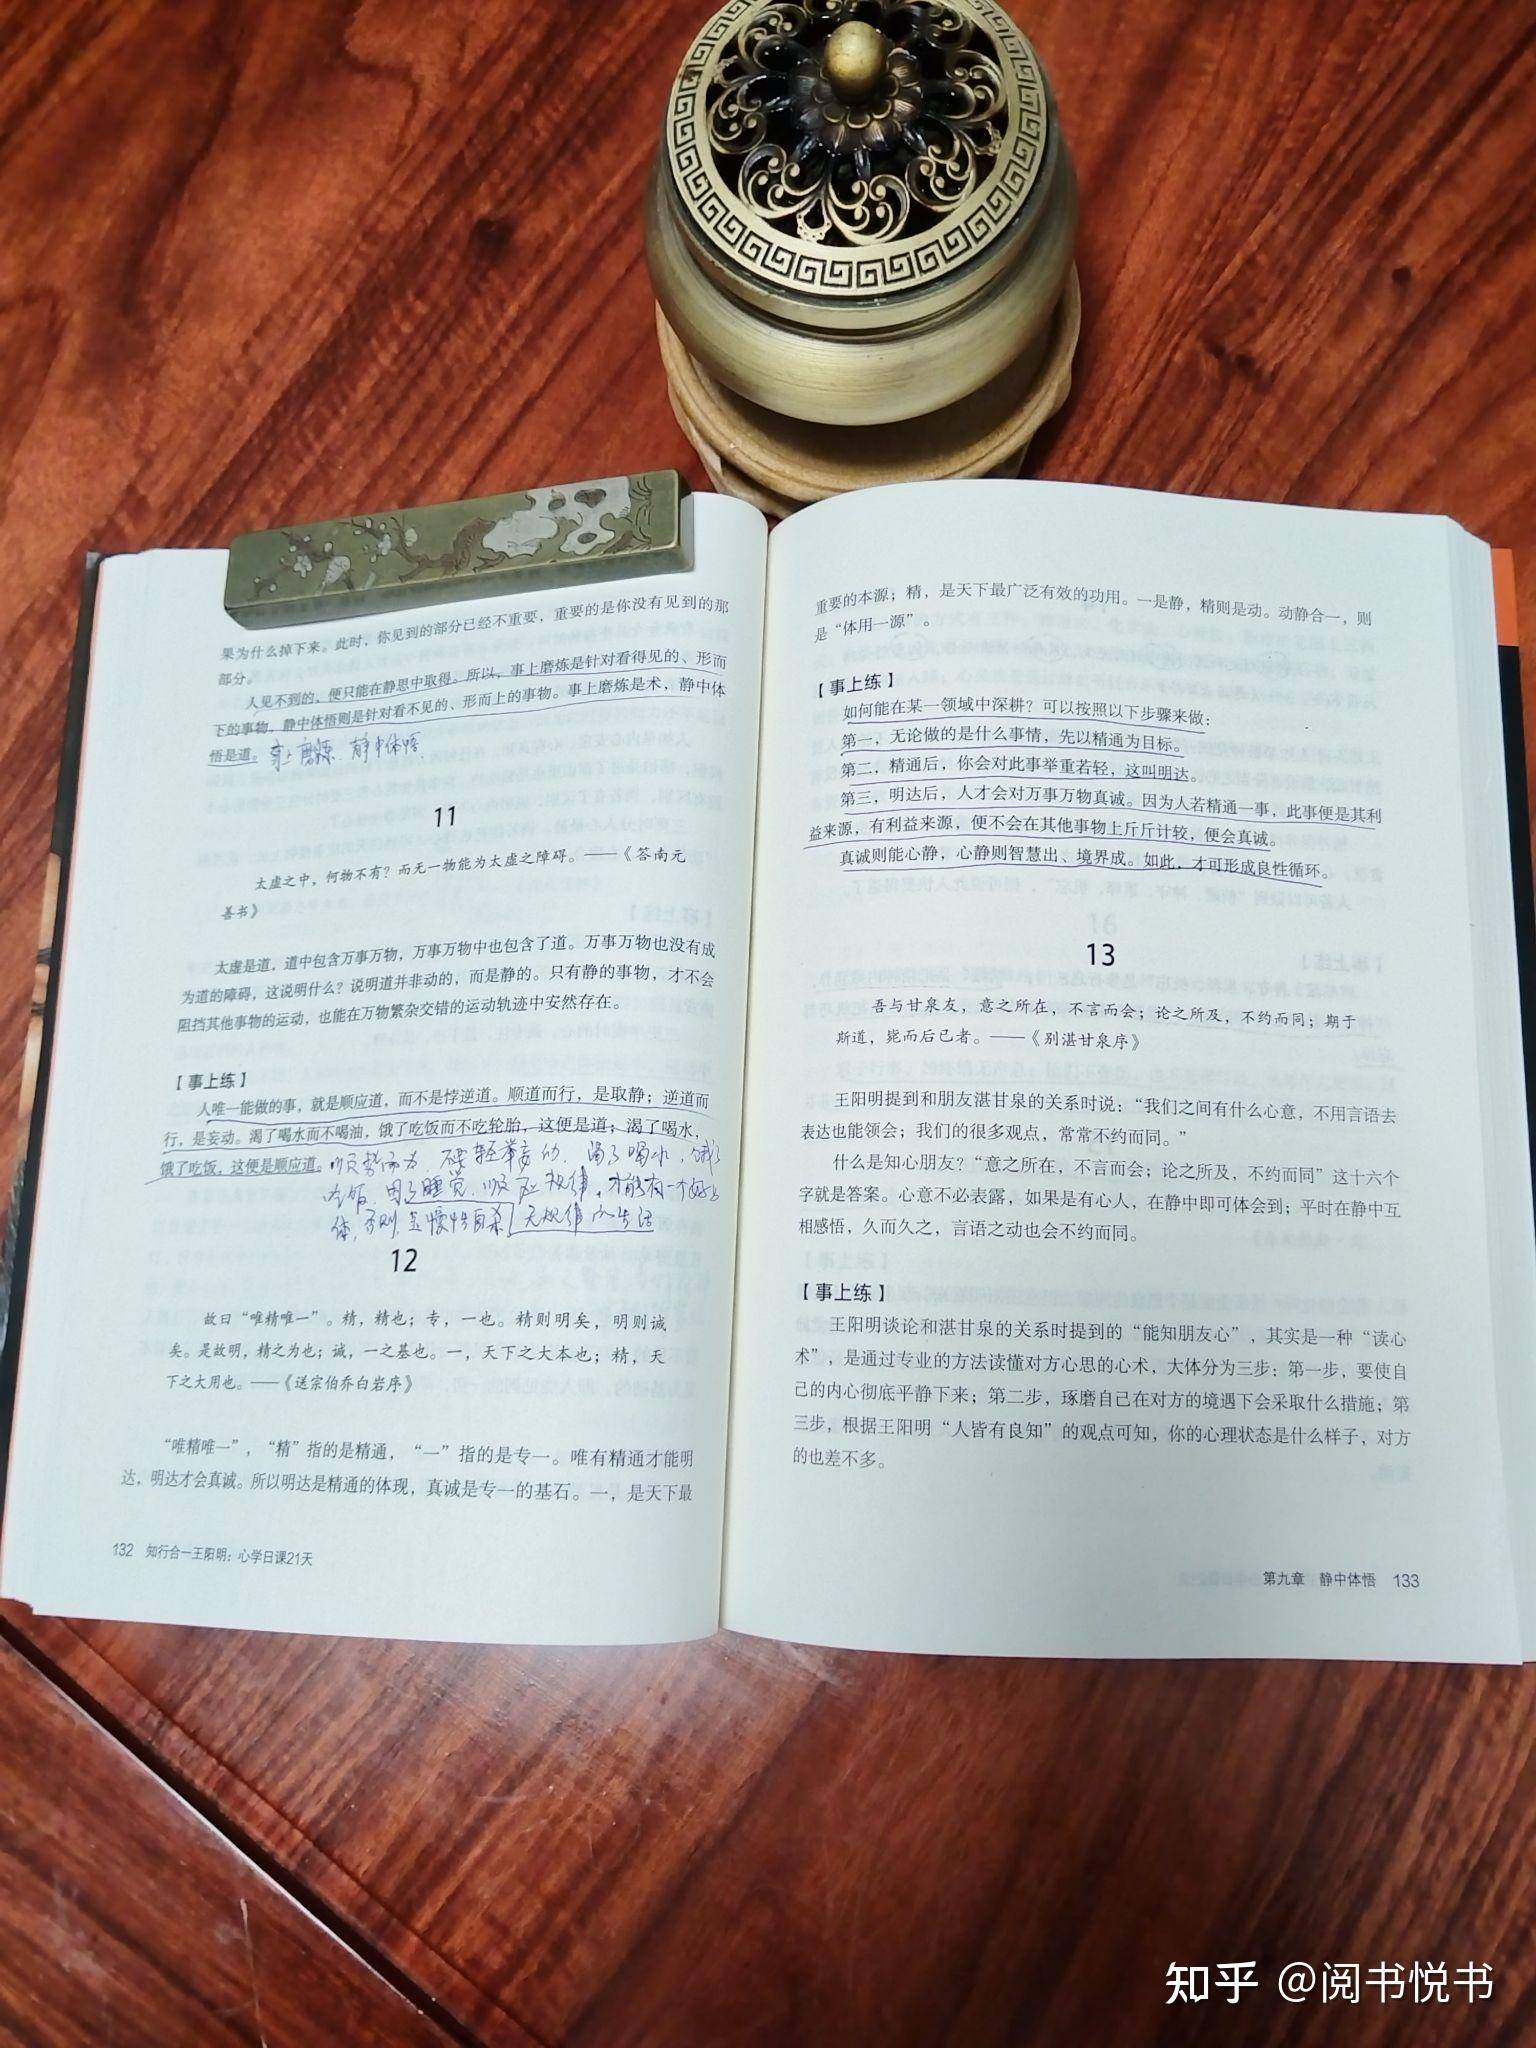 果为什么掉下来。此时，你见到的部分已经不重要，重要的是你没有见到的那
部分。
人见不到的，便只能在静思中取得。所以，事上磨炼是针对看得见的、形而
下的事物，静中体悟则是针对看不见的、形而上的事物。事上磨炼是术，静中体
悟是道。 事上磨炼、静中体悟
11
太虚之中，何物不有？而无一物能为太虚之障碍。——《答南元
善书》
太虚是道，道中包含万事万物，万事万物中也包含了道。万事万物也没有成
为道的障碍，这说明什么？说明道并非动的，而是静的。只有静的事物，才不会
阻挡其他事物的运动，也能在万物繁杂交错的运动轨迹中安然存在。
【事上练】
人唯一能做的事，就是顺应道，而不是悖逆道。顺道而行，是取静；逆道而
行，是妄动。渴了喝水而不喝油，饿了吃饭而不吃轮胎，这便是道；渴了喝水，
饿了吃饭，这便是顺应道。 顺势而为，不要轻举妄动。渴了喝水，饿了
吃饭，困了睡觉，顺应规律，才能有一个好身
体，否则是慢性自杀 无规律的生活
12
故曰“唯精唯一”。精，精也；专，一也。精则明矣，明则诚
矣。是故明，精之为也；诚，一之基也。一，天下之大本也；精，天
下之大用也。——《送宗伯乔白岩序》
“唯精唯一”，“精”指的是精通，“一”指的是专一。唯有精通才能明
达，明达才会真诚。所以明达是精通的体现，真诚是专一的基石。一，是天下最
132 知行合一王阳明：心学日课21天
重要的本源；精，是天下最广泛有效的功用。一是静，精则是动。动静合一，则
是“体用一源”。
【事上练】
如何能在某一领域中深耕？可以按照以下步骤来做：
第一，无论做的是什么事情，先以精通为目标。
第二，精通后，你会对此事举重若轻，这叫明达。
第三，明达后，人才会对万事万物真诚。因为人若精通一事，此事便是其利
益来源，有利益来源，便不会在其他事物上斤斤计较，便会真诚。
真诚则能心静，心静则智慧出、境界成。如此，才可形成良性循环。
13
吾与甘泉友，意之所在，不言而会；论之所及，不约而同；期于
斯道，毙而后已者。——《别湛甘泉序》
王阳明提到和朋友湛甘泉的关系时说：“我们之间有什么心意，不用言语去
表达也能领会；我们的很多观点，常常不约而同。”
什么是知心朋友？“意之所在，不言而会；论之所及，不约而同”这十六个
字就是答案。心意不必表露，如果是有心人，在静中即可体会到；平时在静中互
相感悟，久而久之，言语之动也会不约而同。
【事上练】
王阳明谈论和湛甘泉的关系时提到的“能知朋友心”，其实是一种“读心
术”，是通过专业的方法读懂对方心思的心术，大体分为三步：第一步，要使自
己的内心彻底平静下来；第二步，琢磨自己在对方的境遇下会采取什么措施；第
三步，根据王阳明“人皆有良知”的观点可知，你的心理状态是什么样子，对方
的也差不多。
第九章 静中体悟 133
知乎 @阅书悦书